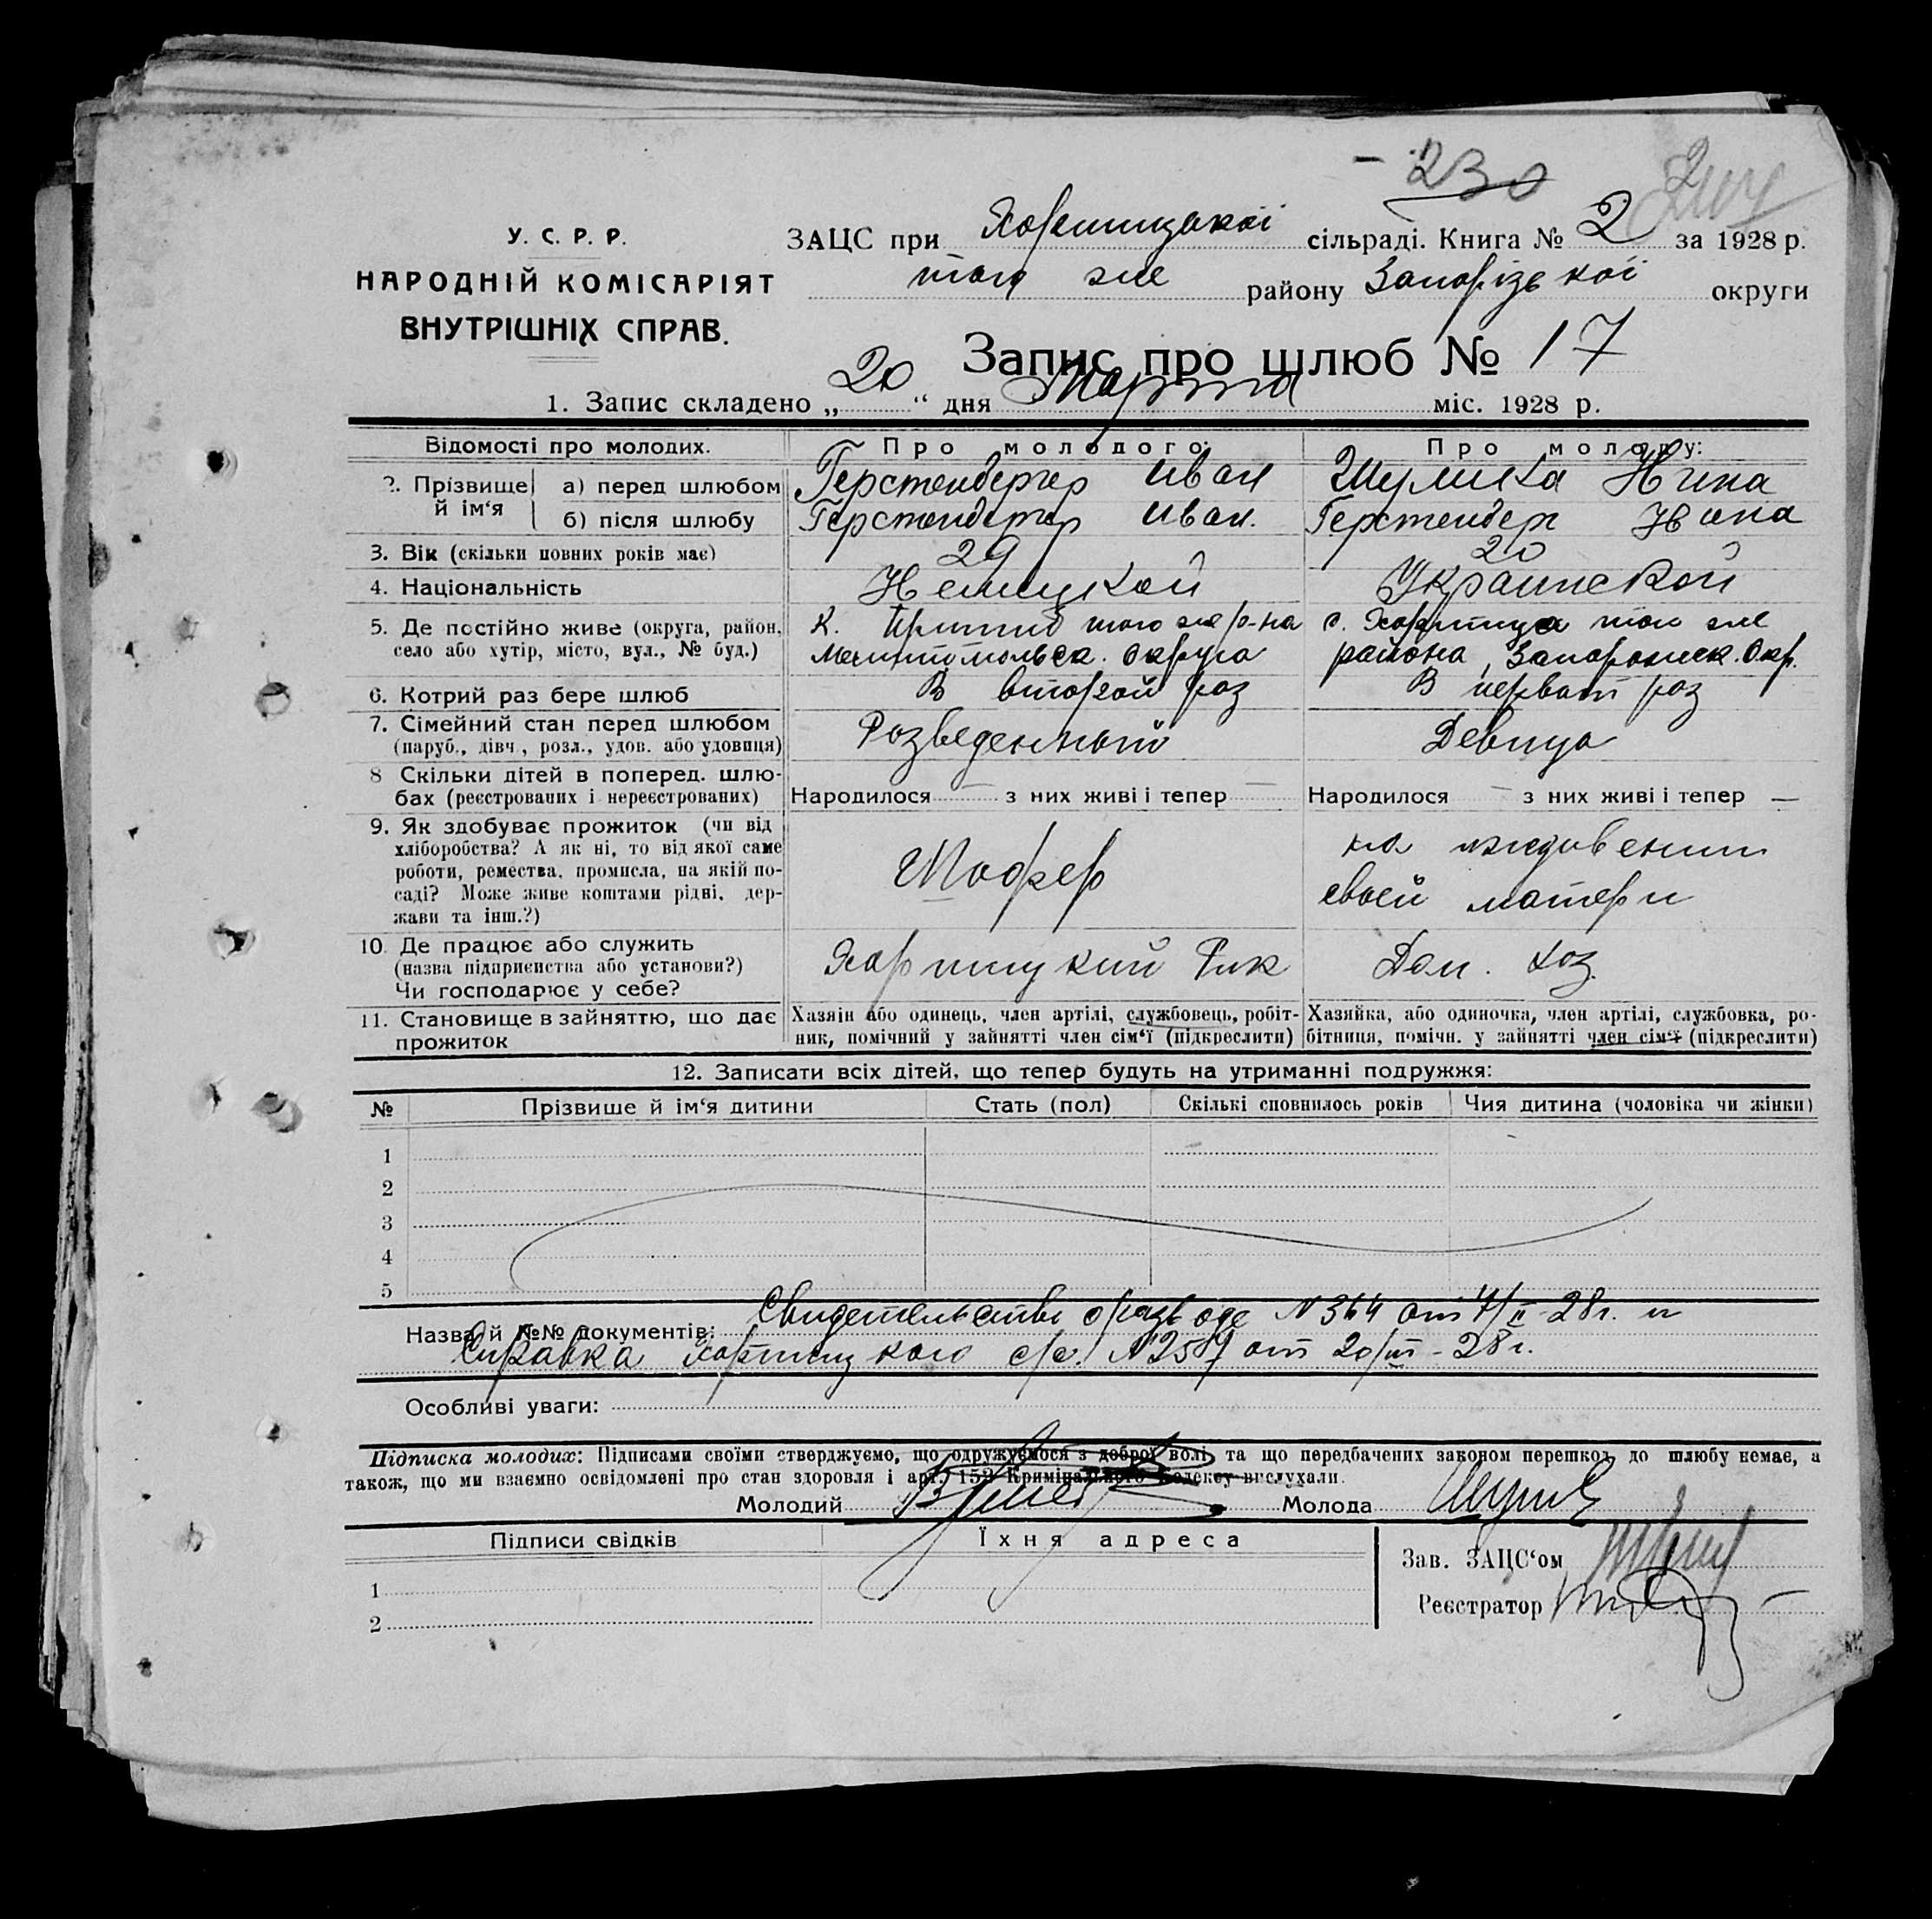 230
У. С. Р. Р.
НАРОДНІЙ КОМІСАРІЯТ
ВНУТРІШНІХ СПРАВ.
ЗАЦС при Хортицької сільраді. Книга № 2 за 1928 р.
того же району Запорізької округи
Запис про шлюб № 17
1. Запис складено „20“ дня Марта міс. 1928 р.
Відомості про молодих. Про молодого: Про молоду:
2. Прізвище й ім‘я а) перед шлюбом Герстенбергер Иван Шулика Нина
б) після шлюбу Герстенбергер Иван. Герстенберг Нина
3. Вік (скільки повних років має) 29 20
4. Національність Немецкой Украинской
5. Де постійно живе (округа, район, К. того же р-на с. Хортица того же
село або хутір, місто, вул., № буд.) Мелитопольск. Округа района, Запорожск. Окр.
6. Котрий раз бере шлюб В второй раз В первый раз
7. Сімейний стан перед шлюбом Розведенный Девица
(паруб., дівч., розл., удов. або удовиця)
8 Скільки дітей в поперед. шлю-
бах (реєстрованих і нереєстрованих) Народилося — з них живі і тепер — Народилося — з них живі і тепер —
9. Як здобуває прожиток (чи від
хліборобства? А як ні, то від якої саме
роботи, ремества, промисла, на якій по-
саді? Може живе коштами рідні, дер-
жави та інш.?)
Шофер
на иждивении
своей матери
10. Де працює або служить
(назва підприємства або установи?)
Чи господарює у себе?
Хортицкий Рик Дом. хоз.
11. Становище в зайняттю, що дає
прожиток
Хазяін або одинець, член артілі, службовець, робіт-
ник, помічний у зайнятті член сім‘ї (підкреслити)
Хазяйка, або одиночка, член артілі, службовка, ро-
бітниця, помічн. у зайнятті член сім‘ї (підкреслити)
12. Записати всіх дітей, що тепер будуть на утриманні подружжя:
№ Прізвище й ім‘я дитини Стать (пол) Скількі сповнилось років Чия дитина (чоловіка чи жінки)
1
2
3
4
5
Назва й №№ документів: Свидетельство о разводе N 364 от 4/II-28г. и
Справка Хортицкого с/с. N 2587 от 20/III-28г.
Особливі уваги:
Підписка молодих: Підписами своїми стверджуємо, що одружуємося з доброї волі, та що передбачених законом перешкод до шлюбу немає, а
також, що ми взаємно освідомлені про стан здоровля і арт. 152 Кримінального Кодексу вислухали.
Молодий Молода
Підписи свідків Їхня адреса
1
2
Зав. ЗАЦС‘ом
Реєстратор